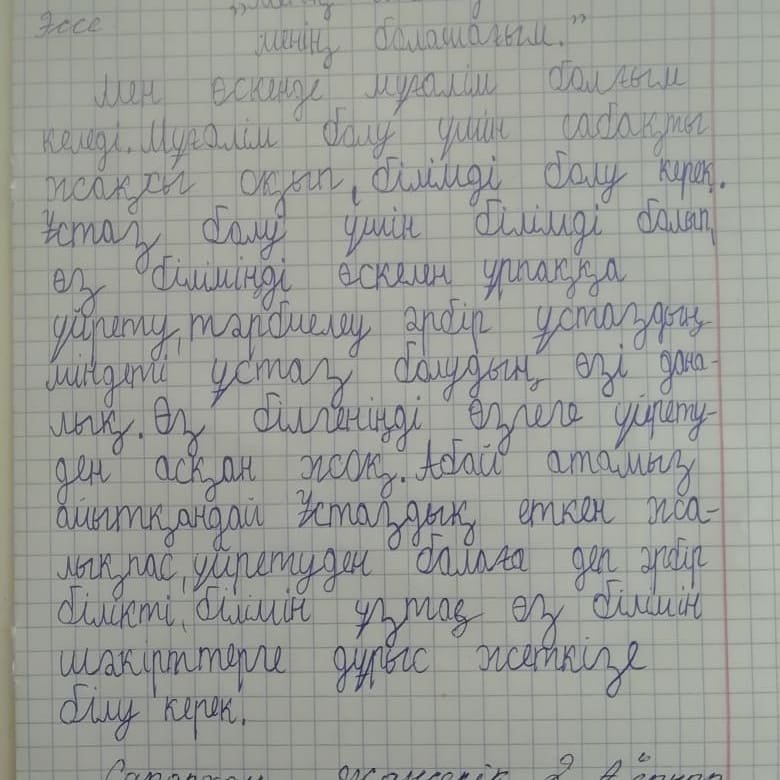 Эссе
менің болашағым."
Мен өскенде мұғалім болғым
келеді. Мұғалім болу үшін сабақты
жақсы оқып, білімді болу керек.
Ұстаз болу үшін білімді болып,
өз біліміңді өскелең ұрпаққа
үйрету, тәрбиелеу әрбір ұстаздың
міндеті ұстаз болудың өзі дана-
лық. Өз білгеніңді өзгеге үйрету-
ден асқан жоқ. Абай атамыз
айытқандай Ұстаздық еткен жа-
лықпас, үйретуден балаға деп әрбір
білікті, білімін ұзтаз өз білімін
шәкірттерге дұрыс жеткізе
білу керек.